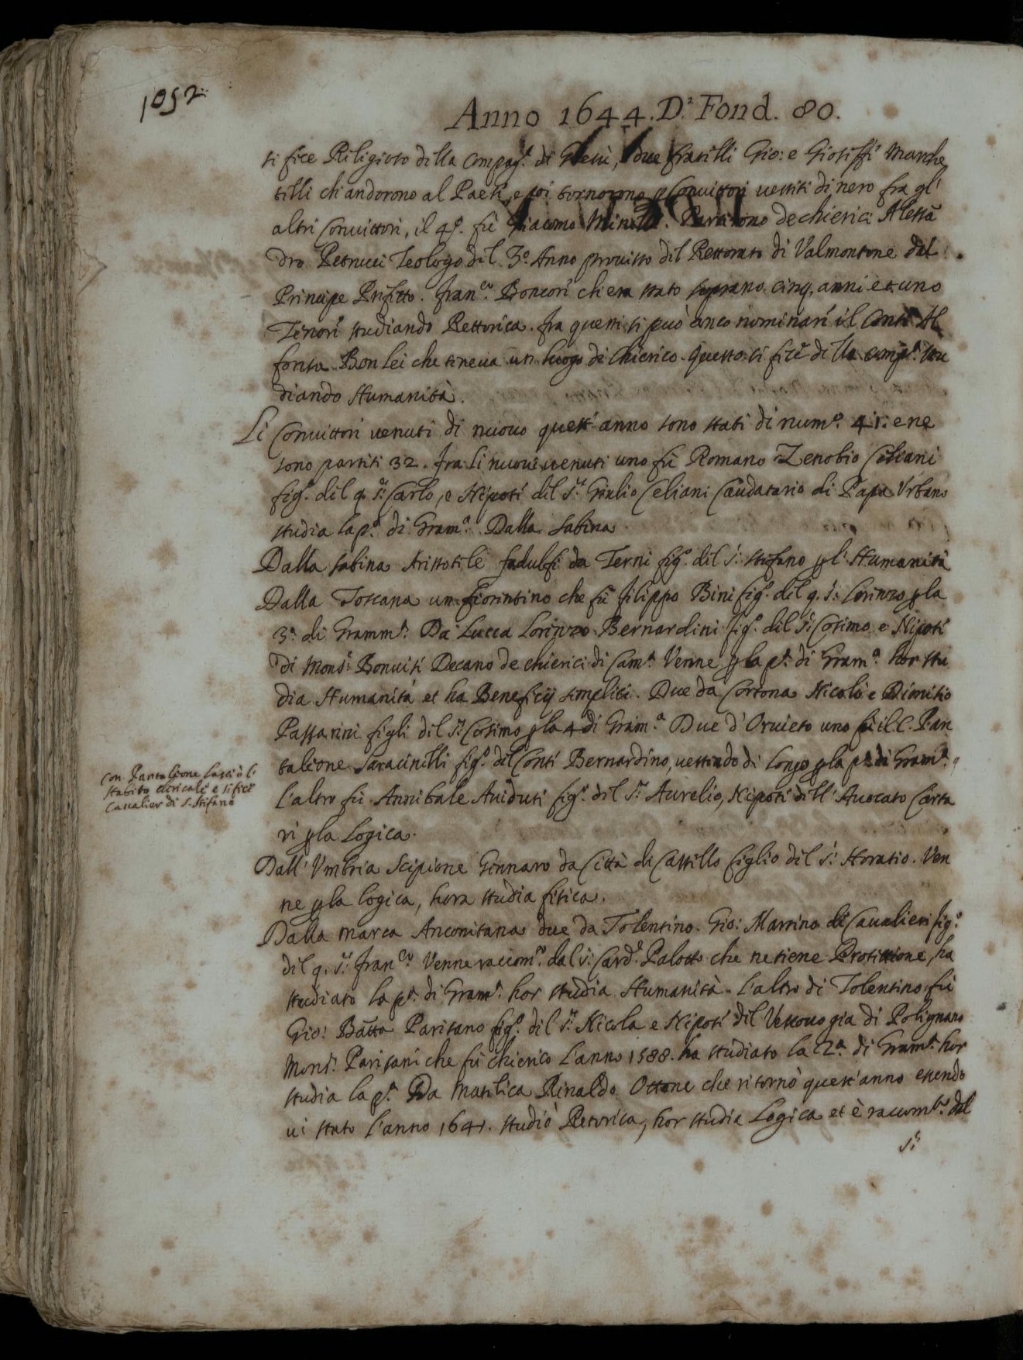 1052
Anno 1644. D: Fond. 80.
si fece Religioso della Compag.ª di Giesù, due fratelli Gio: e Gioseffe Marche
selli ch'andorono al Paese, e poi tornorono p Convittori vestiti di nero fra gl'
altri Convittori, il 4º. fu Giacomo Partirono de chierici Alessã
dro Petrucci Teologo del 3º Anno provisto del Rettorato di Valmontone dal
Principe Prefetto. Fran.co Boncori che era stato soprano cinq. anni et uno
Tenore studiando Rettorica. fra questi si può anco nominare il Conte Al
fonso Bonlei che teneva un luogo di Chierico. questo si fece della comp.ª stu
diando Humanità.
Li Convittori venuti di nuovo quest'anno sono stati di num.º 41. e ne
sono partiti 32. fra li nuovi venuti uno fu Romano Zenobio Celiani
fig.º del q. S.r Carlo, e Nipote del S.r Giulio Celiani Caudatario di Papa Urbano
studia la p.ª di Gram.ª Dalla Sabina
Dalla Sabina Aristotele fadulfi da Terni fig.º del S: Stefano p l'Humanità
Dalla Toscana un fiorentino che fu filippo Bini fig.º del q. S: Lorenzo p la
3.ª di Gramm.ª Da Lucca Lorenzo Bernardini fig.º del S: Cosimo e Nipote
di Mons.r Bonvisi Decano de chierici di Cam.ª Venne p la p.ª di Gram.ª hor stu
dia Humanità et ha Beneficij semplici. Due da Cortona Nicolò e Dimitio
Passarini figli del S.r Cosimo p la 4 di Gram.ª Due d'Orvieto uno fu il C. Pan
taleone Saracinelli fig.º del Conte Bernardino, vestendo di longo p la p.ª di Gram.ª
L'altro fu Annibale Aviduti fig.º del S.r Aurelio, Nipote dell'Avocato Carta
ri p la Logica.
Con. Pantaleone lasciò l'
habito clericale e si fece
Cavalier di S. Stefano
Dall'Umbria Scipione Gennaro da Città di Castello figlio del S: Horatio. Ven
ne p la logica, hora studia fisica.
Dalla marca Anconitana due da Tolentino. Gio: Martino de Cavalieri fig.º
del q. S.r Fran.co Venne raccom.to dal S: Card.e Palotto che ne tiene Protettione, ha
studiato la p.ª di Gram.ª hor studia Humanità. L'altro di Tolentino fu
Gio: Batta Parisano fig.º del S.r Nicola e Nipote del Vescovo gia di Polignano
Mons.r Parisani che fu chierico l'anno 1588. ha studiato la 2.ª di Gram.ª hor
studia la p.ª Da Matelica Rinaldo Ottone che ritornò quest'anno essendo
vi stato l'anno 1641. studiò Retorica, hor studia Logica et è raccom.to dal
S.r